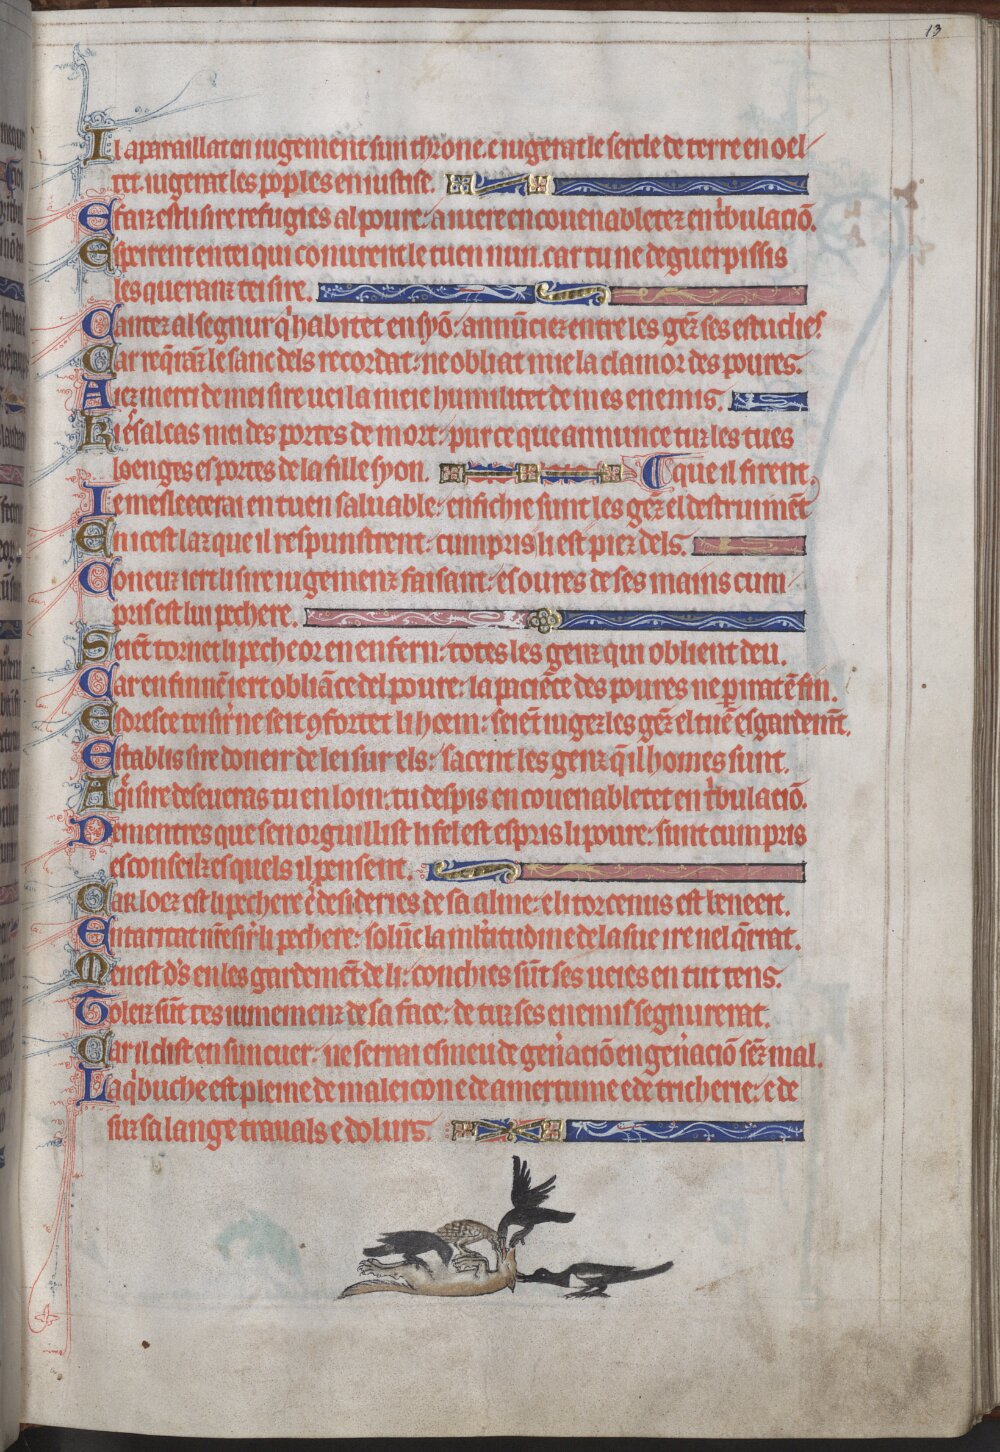 13
Il aparaillat en iugement sun throne. e iugerat le sercle de terre en oel
tet. iugerat les poples en iustise.
E faiz est li sire refugies al poure: aiuere en couenabletez en tbulaciō.
E sperent en tei qui conurent le tuen nun. car tu ne deguerpissis
les queranz tei sire.
Cantez al segnur q̄ habitet en syō: annūciez entre les gēz ses estudies.
Car req̄rāz le sanc dels recordat: ne obliat mie la clamor des poures.
Aiez merci de mei sire uei la meie humilitet de mes enemis.
Ki esalcas mei des portes de mort: pur ce que annunce tuz les tues
loenges es portes de la fille syon.
Ie mesleecerai en tuen saluable: enfichie sunt les gēz el destruimēt
que il firent,
En icest laz que il respunstrent: cumpris li est piez dels.
Coneuz iert li sire iugemenz faisant: es oures de ses mains cum
pris est lui pechere.
Seiēt tornet li pecheor en enfern: totes les genz qui oblient deu.
Car en fin nē iert obliāce del poure: la paciēce des poures ne pirat ē fin.
Esdresce tei sir̄ ne seit 9fortet li hoem: seiēt iugez les gēz el tuē esgardemt̄.
Establis sire doneir de lei sur els: sacent les genz q̄ il homes sunt.
A q̄i sire deseueras tu en loin: tu despis en couenabletet en tbulaciō.
Dementres que sen orguillist li fel est espris li poure: sunt cumpris
es conseilz es quels il pensent.
Car loez est li pechere ē desideries de sa alme: e li torcenus est beneeit.
Entaritat nr̄e sir̄ li pechere: solūc la mltitudine de la sue ire nel q̄rrat.
Nenest ds̄ en les gardemēt de li: conchies sūt ses ueies en tut tens.
Toleiz sūt tes iumemenz de sa face: de tuz ses enemis segnurerat.
Car il dist en sun cuer: ne serrai esmeu de gen̄aciō en gen̄aciō sēz mal.
La q̄ buche est pleine de maleicon e de amertume e de tricherie: e de
suz sa lange trauals e dolurs.